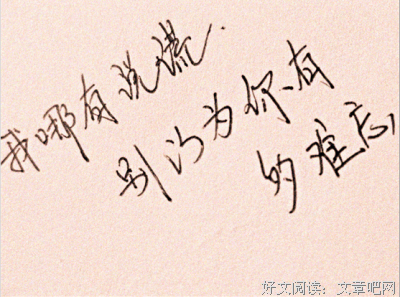 我哪有说谎.
别以为你有
的难忘,
好文阅读：文章吧网